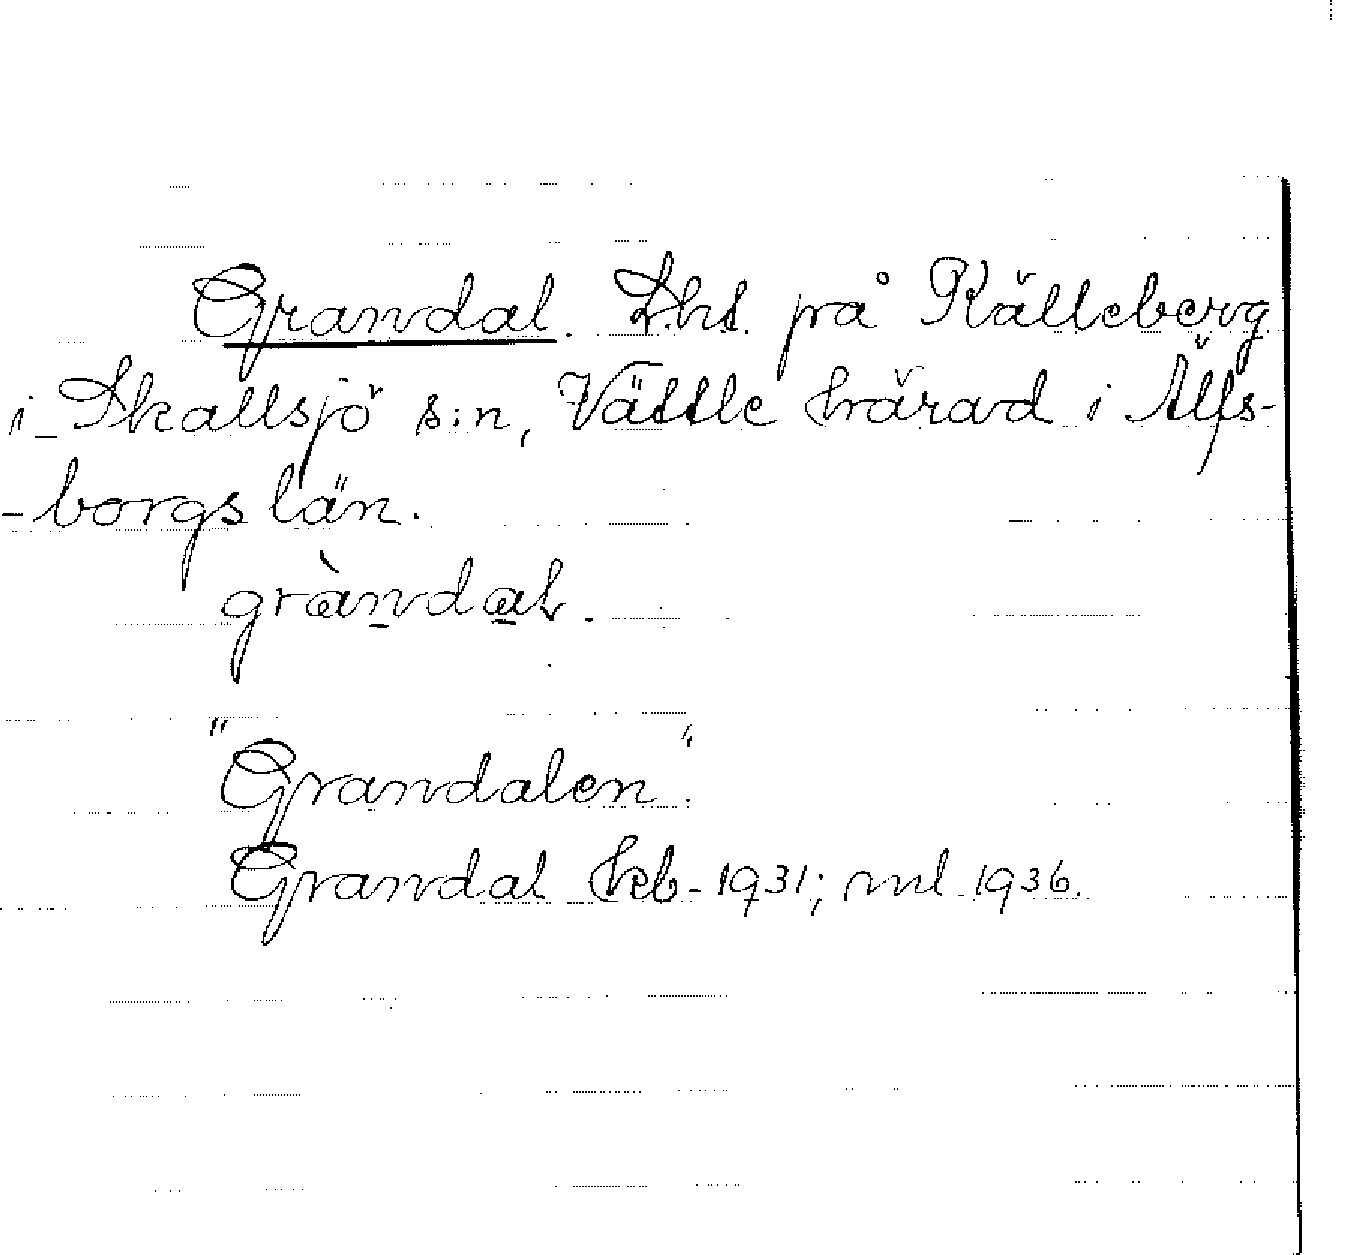 Grandal. Lht. på Källeberg
i Skallsjö s:n, Vättle härad i Älfs-
-borgs län.
gràndal.
"Grandalen".
Grandal hb-1931; ml 1936.